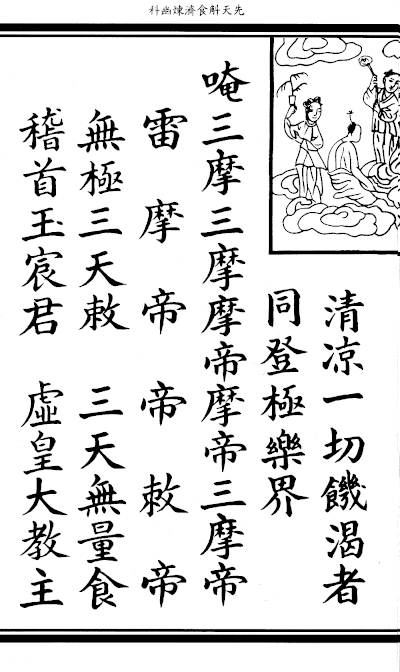 先天斛食濟煉幽科
清凉一切饑渴者
同登極樂界
唵三摩三摩摩帝摩帝三摩帝
雷摩帝帝敕帝
無極三天敕　三天無量食
稽首玉宸君　虛皇大教主